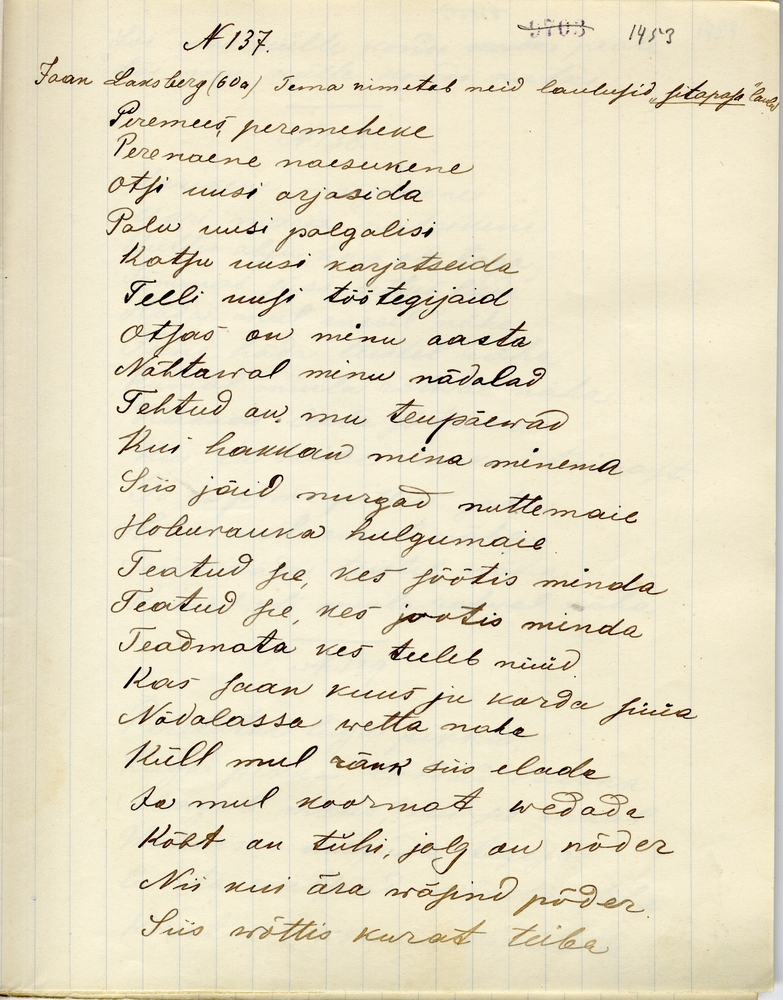 N 137.
9703 1453
Jaan Laksberg (60a) Tema nimetab neid laulusid "sitapasa" laulud
Peremees, peremeheke
Perenaene naesukene
Otsi uusi orjasida
Palu uusi palgalisi
Katsu uusi karjatseida
Telli uusi töötegijaid
Otsas on minu aasta
Nähtawal minu nädalad
Tehtud on mu teupäewad
Kui hakkan mina minema
Siis jäid nurgad nuttemaie
Hoburauka hulgumaie
Teatud se, kes söötis minda
Teatud se, kes jootis minda
Teadmata kes tuleb nüüd
Kas saan kuus ju korda süüa
Nädalassa wetta naha
Küll mul ränk siis elada
Ja mul koormat wedada
Kõht on tühi, jalg on nõder
Nii kui ära wäsind põder
Siis wõttis kurat teiba